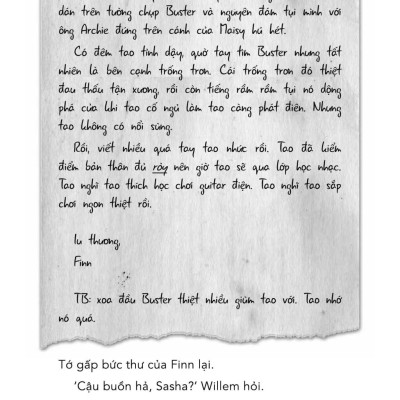 dán trên tường chụp Buster và nguyên đám tụi mình với
ông Archie đứng trên cánh của Maisy hú hét.
Có đêm tao tỉnh dậy, quờ tay tìm Buster nhưng tất
nhiên là bên cạnh trống trơn. Cái trống trơn đó thiệt
đau thấu tận xương, rồi còn tiếng rầm rầm tụi nó động
phá của khi tao cố ngủ làm tao càng phát điên. Nhưng
tao không có nổi súng.
Rồi, viết nhiều quá tay tao nhức rồi. Tao đã kiểm
điểm bản thân đủ rồy nên giờ tao sẽ qua lớp học nhạc.
Tao nghĩ tao thích học chơi guitar điện. Tao nghĩ tao sắp
chơi ngon thiệt rồi.
Iu thương,
Finn
TB: xoa đầu Buster thiệt nhiều giùm tao với. Tao nhớ
nó quá.
Tớ gấp bức thư của Finn lại.
‘Cậu buồn hả, Sasha?’ Willem hỏi.